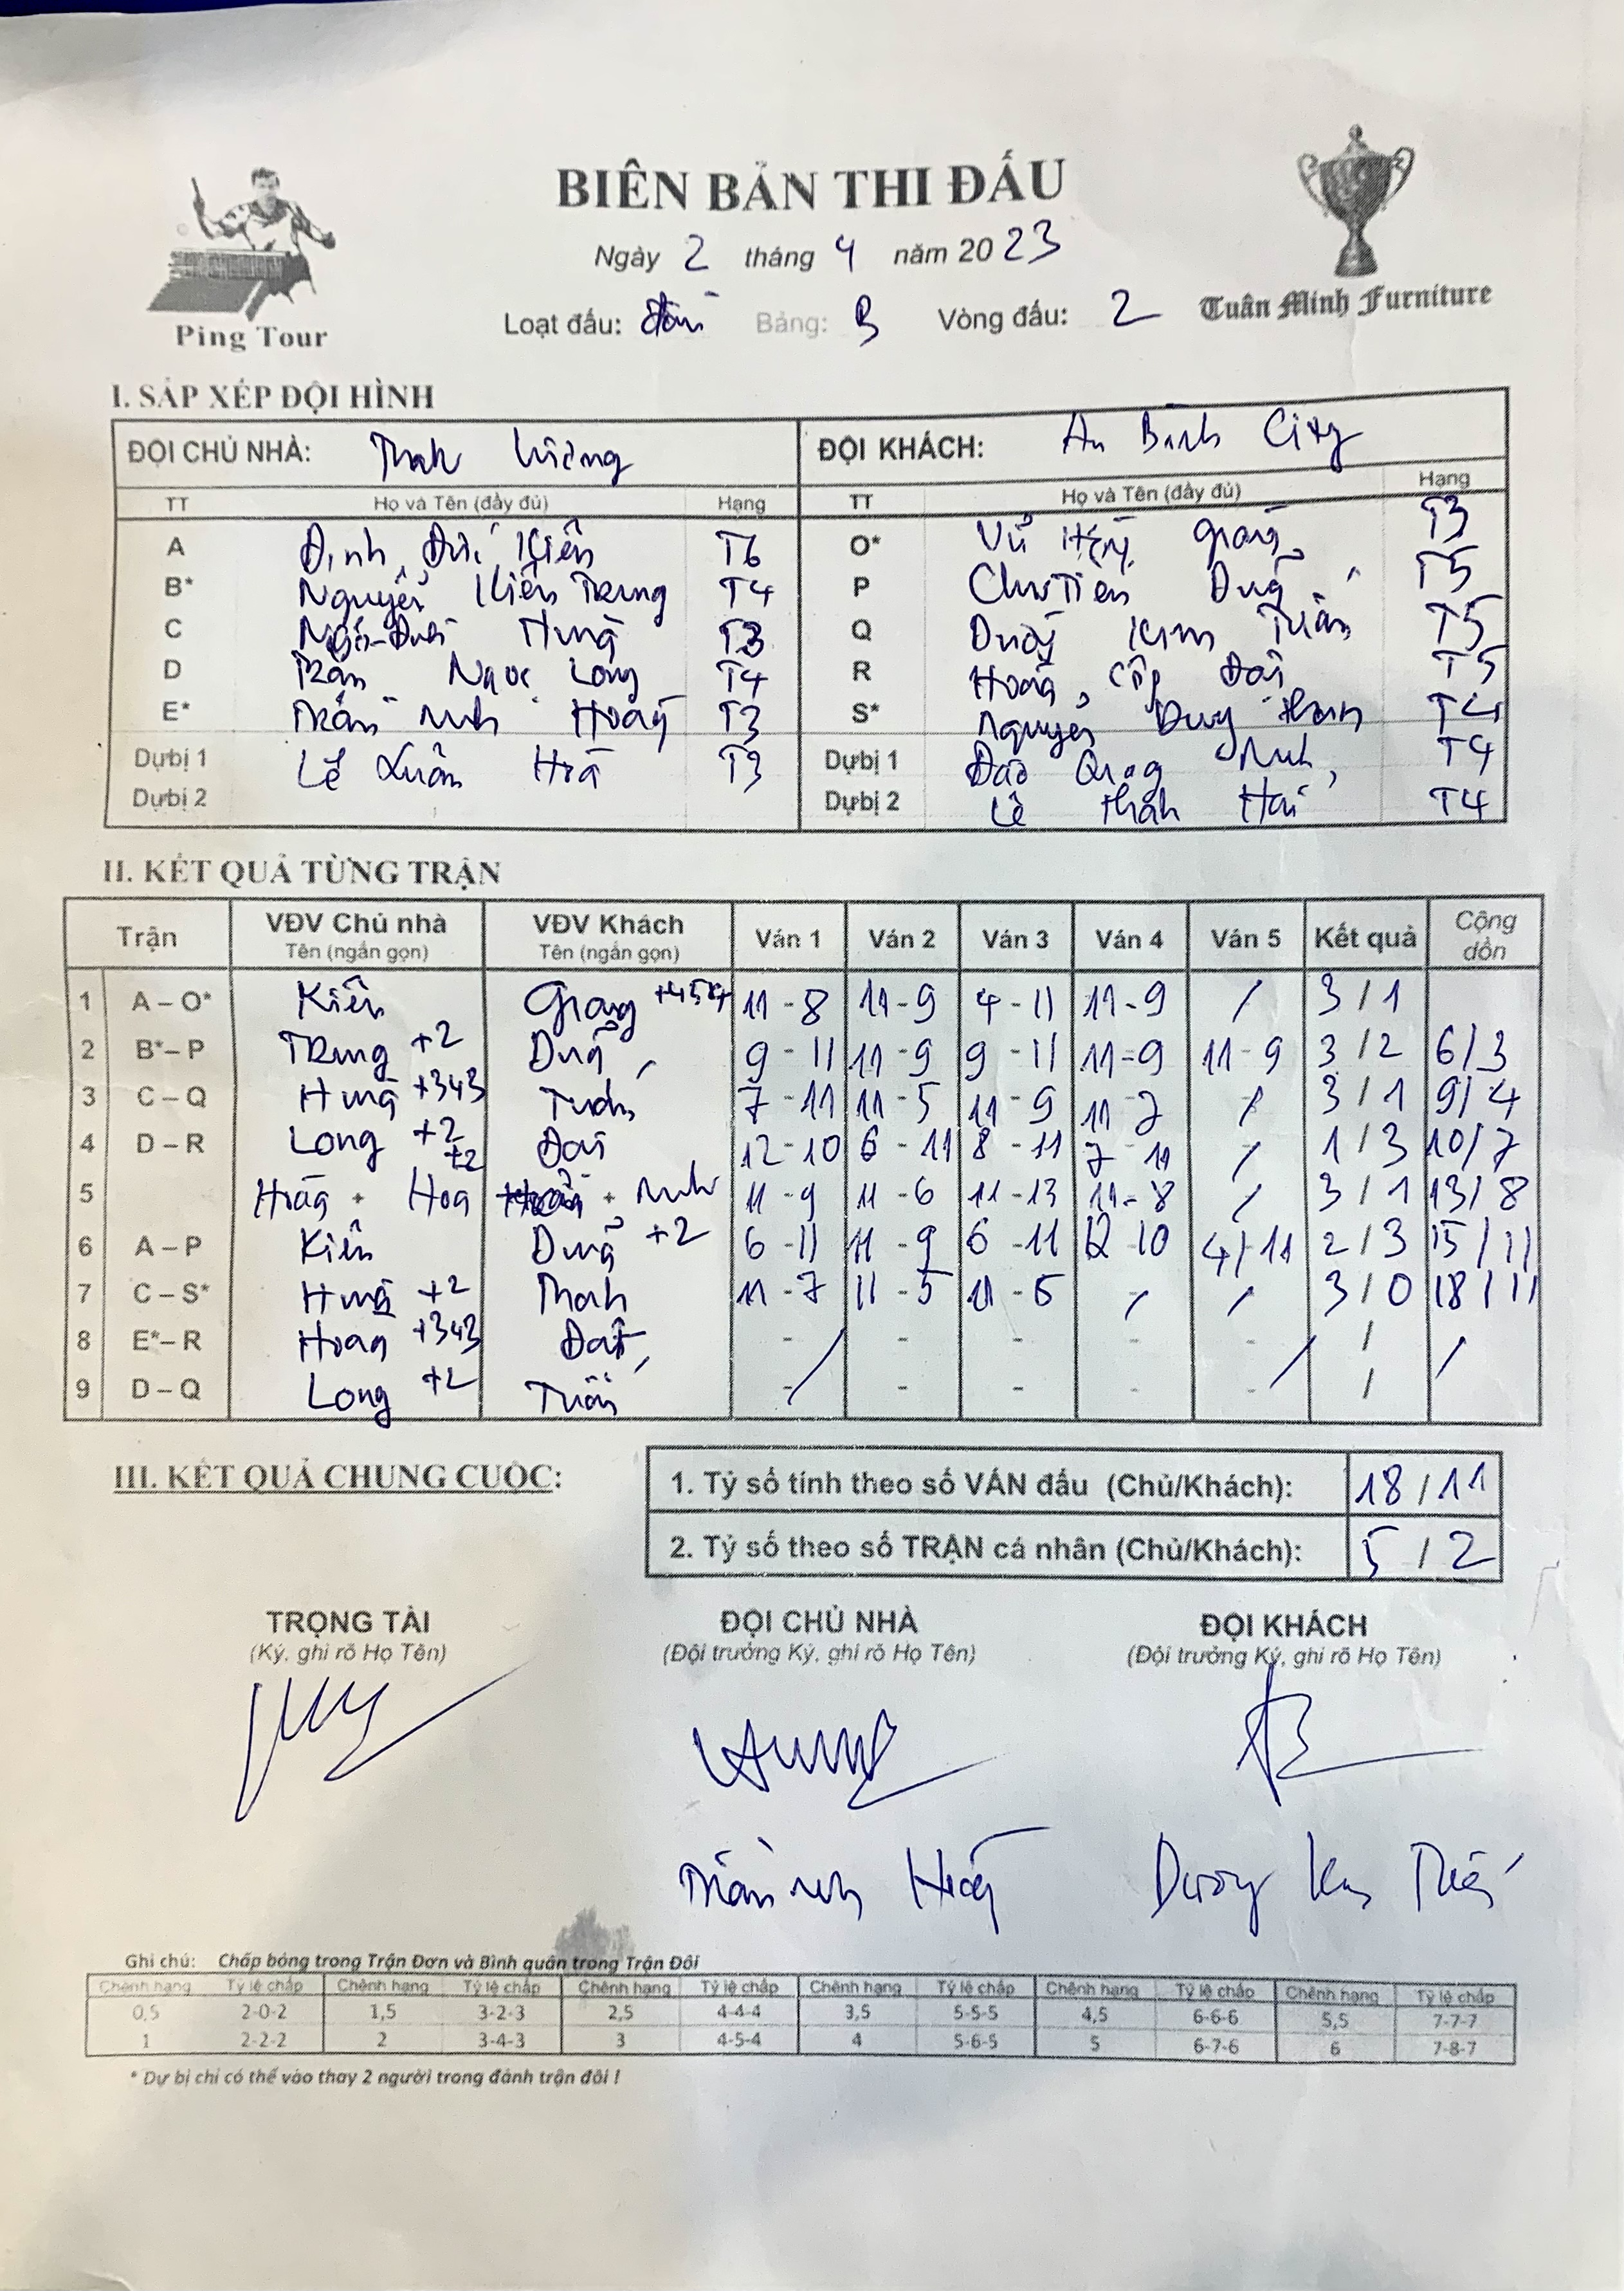 BIÊN BẢN THI ĐẤU
Ngày 2 tháng 4 năm 2023
Ping Tour
Loạt đấu: Bảng: B Vòng đấu: 2
Tuấn Minh Furniture
I. SẮP XẾP ĐỘI HÌNH
ĐỘI CHỦ NHÀ: ĐỘI KHÁCH: An Bình City
TT Họ và Tên (đầy đủ) Hạng TT Họ và Tên (đầy đủ) Hạng
A Đinh Đức Kiên T6 O* Vũ Giang T3
B* Nguyễn Kiên Trung T4 P Chu Tiến Dũng T5
C Ngô Đức Hưng T3 Q Dương Kim Tuấn T5
D Trần Ngọc Long T4 R Hoàng T5
E* Trần Anh Hoàng T3 S* Nguyễn Duy Thanh T4
Dự bị 1 Lê Xuân Hoà T3 Dự bị 1 Đào Quang Minh T4
Dự bị 2 Dự bị 2 Lê Thanh Hải T4
II. KẾT QUẢ TỪNG TRẬN
Trận VĐV Chủ nhà VĐV Khách Ván 1 Ván 2 Ván 3 Ván 4 Ván 5 Kết quả Cộng dồn
Tên (ngắn gọn) Tên (ngắn gọn)
1 A – O* Kiên Giang 11 - 8 11 - 9 4 - 11 11 - 9 / 3 / 1
2 B* – P Trung +2 Dũng 9 - 11 11 - 9 9 - 11 11 - 9 11 - 9 3 / 2 6 / 3
3 C – Q Hưng +343 Tuấn 7 - 11 11 - 5 11 - 9 11 - 7 / 3 / 1 9 / 4
4 D – R Long +2 12 - 10 6 - 11 8 - 11 7 - 11 / 1 / 3 10 / 7
5 Hoàng + Hoà +2 + Minh 11 - 9 11 - 6 11 - 13 11 - 8 / 3 / 1 13 / 8
6 A – P Kiên Dũng +2 6 - 11 11 - 9 6 - 11 12 - 10 4 / 11 2 / 3 15 / 11
7 C – S* Hưng +2 Thanh 11 - 7 11 - 5 11 - 6 / / 3 / 0 18 / 11
8 E* – R Hoàng +343 - - - - / / /
9 D – Q Long +2 Tuấn - / - - - - /
III. KẾT QUẢ CHUNG CUỘC:
1. Tỷ số tính theo số VÁN đấu (Chủ/Khách): 18 / 11
2. Tỷ số theo số TRẬN cá nhân (Chủ/Khách): 5 / 2
TRỌNG TÀI ĐỘI CHỦ NHÀ ĐỘI KHÁCH
(Ký, ghi rõ Họ Tên) (Đội trưởng Ký, ghi rõ Họ Tên) (Đội trưởng Ký, ghi rõ Họ Tên)
Trần Anh Hoàng Dương Kim Tuấn
Ghi chú: Chấp bóng trong Trận Đơn và Bình quân trong Trận Đôi
Chênh hạng Tỷ lệ chấp Chênh hạng Tỷ lệ chấp Chênh hạng Tỷ lệ chấp Chênh hạng Tỷ lệ chấp Chênh hạng Tỷ lệ chấp Chênh hạng Tỷ lệ chấp
0,5 2-0-2 1,5 3-2-3 2,5 4-4-4 3,5 5-5-5 4,5 6-6-6 5,5 7-7-7
1 2-2-2 2 3-4-3 3 4-5-4 4 5-6-5 5 6-7-6 6 7-8-7
* Dự bị chỉ có thể vào thay 2 người trong đánh trận đôi !